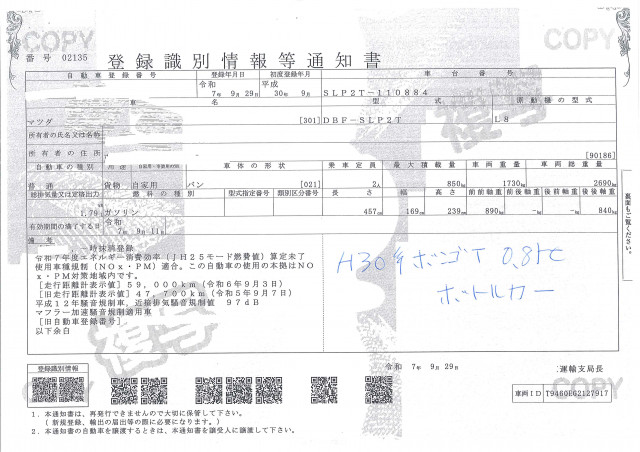 COPY
COPY
番号 02135
登録識別情報等通知書
自動車登録番号
登録年月日
初度登録年月
車台番号
令和
7年 9月 29日
平成
30年 9月
SLP2T-110884
車名
型式
原動機の型式
マツダ
[301]
DBF-SLP2T
L8
所有者の氏名又は名称
所有者の住所
[90186]
自動車の種別
用途
自家用・事業用の別
車体の形状
乗車定員
最大積載量
車両重量
車両総重量
普通
貨物
自家用
バン
[021]
2人
850kg
1730kg
2690kg
総排気量又は定格出力
燃料の種類
型式指定番号
類別区分番号
長さ
幅
高さ
前前軸重
前後軸重
後前軸重
後後軸重
1.79
ガソリン
457cm
169cm
239cm
890kg
-kg
-kg
840kg
有効期間の満了する日
令和
7年 9月11日
備考
一時抹消登録
令和7年度エネルギー消費効率(JH25モード燃費値)算定未了
使用車種規制(NOx・PM)適合。この自動車の使用の本拠はNO
x・PM対策地域内です。
[走行距離計表示値]59,000km(令和6年9月3日)
[旧走行距離計表示値]47,700km(令和5年9月7日)
平成12年騒音規制車,近接排気騒音規制値 97dB
マフラー加速騒音規制適用車
[旧自動車登録番号]
以下余白
H30年 ボンゴT 0.8tc
ボトルカー
複写
複写
裏面もご覧ください。
令和 7年 9月 29日
運輸支局長
登録識別情報
COPY
COPY
車両ID
T9460E62127917
1.本通知書は、再発行できませんので大切に保管して下さい。
(新規登録、輸出の届出等の際に必要になります。)
2.本通知書の自動車を譲渡するときは、本通知書を譲受人に譲渡して下さい。